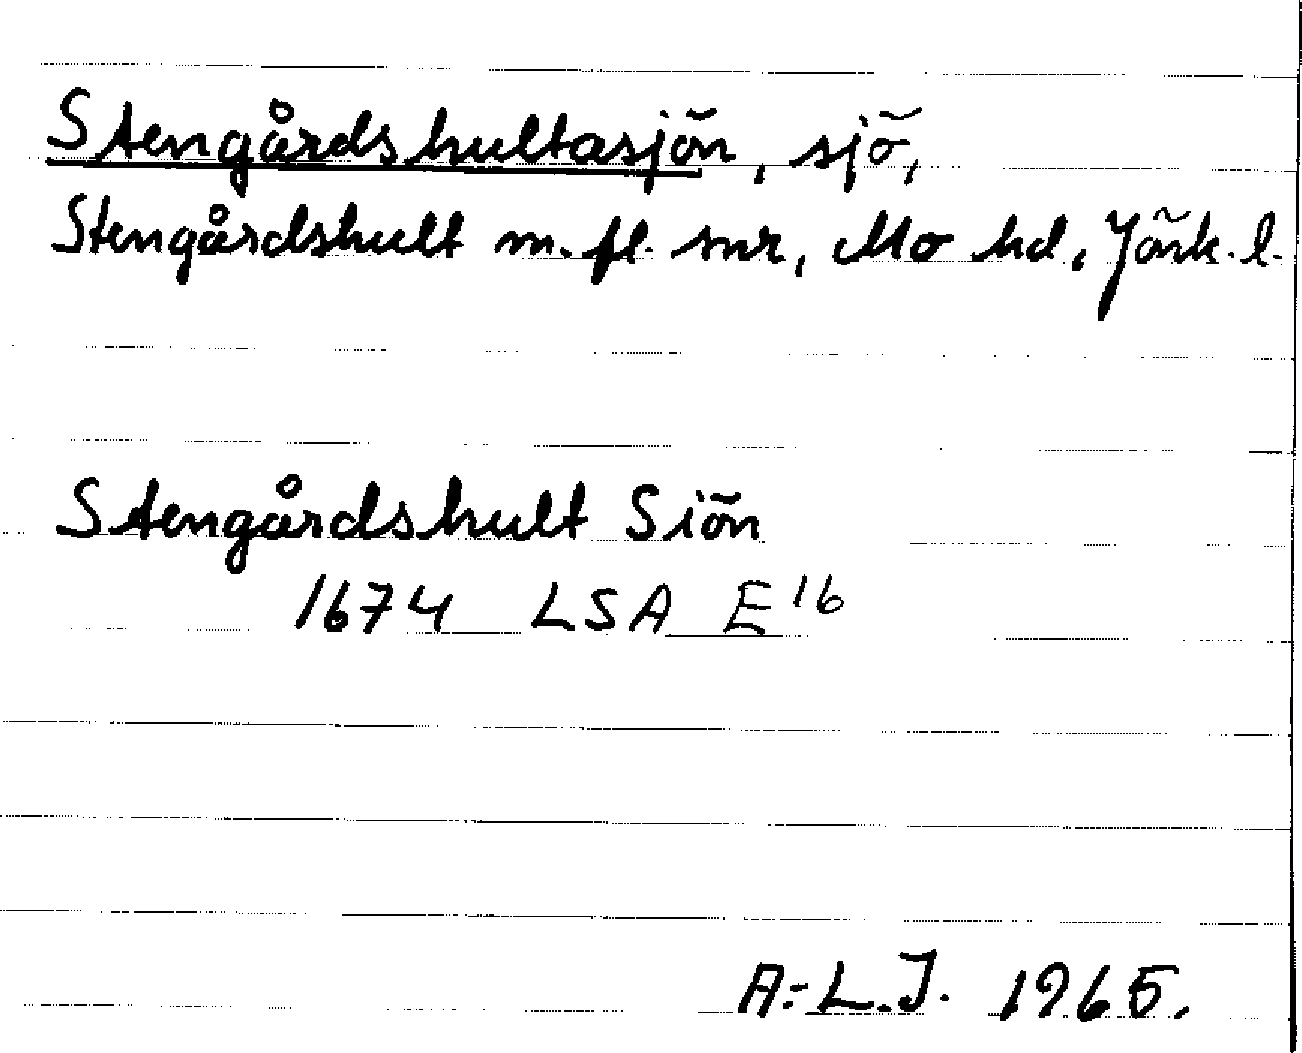 Stengårdshultasjön, sjö,
Stengårdshult m.fl. snr, Mo hd, Jönk. l.
Stengårdshult Siön
1674 LSA E16
A.-L.J. 1965.